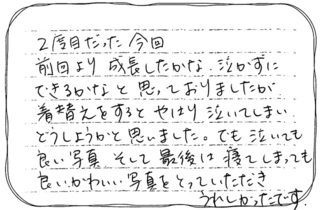 2度目だった今回
前回より成長したかな、泣かずに
できるかなと思っておりましたが
着替えをするとやはり泣いてしまい
どうしようかと思いました。でも泣いても
良い写真そして最後は寝てしまっても
良いかわいい写真をとっていただき
うれしかったです。